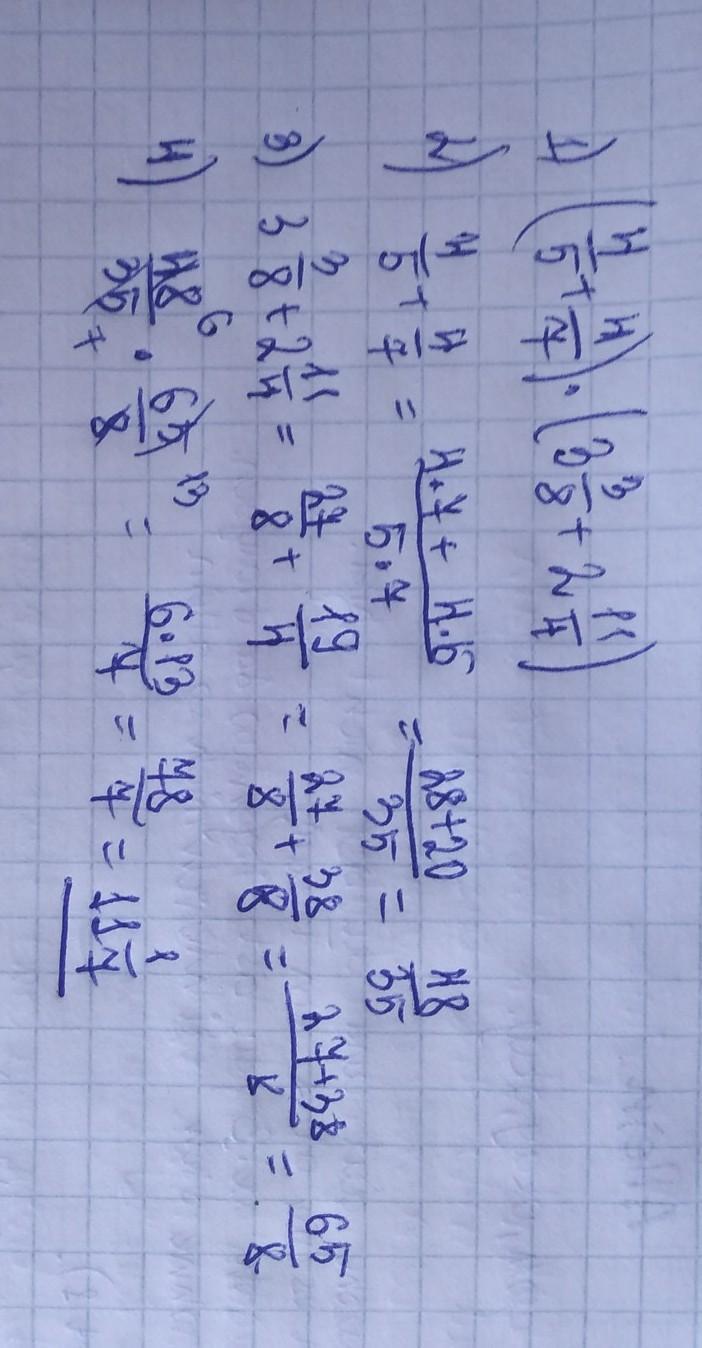 1) (4/5 + 4/7) · (3 3/8 + 2 11/4)
2) 4/5 + 4/7 = (4·7 + 4·5)/(5·7) = (28+20)/35 = 48/35
3) 3 3/8 + 2 11/4 = 27/8 + 19/4 = 27/8 + 38/8 = (27+38)/8 = 65/8
4) 48/35 · 65/8 = (6·13)/7 = 78/7 = 11 1/7
6 13
7